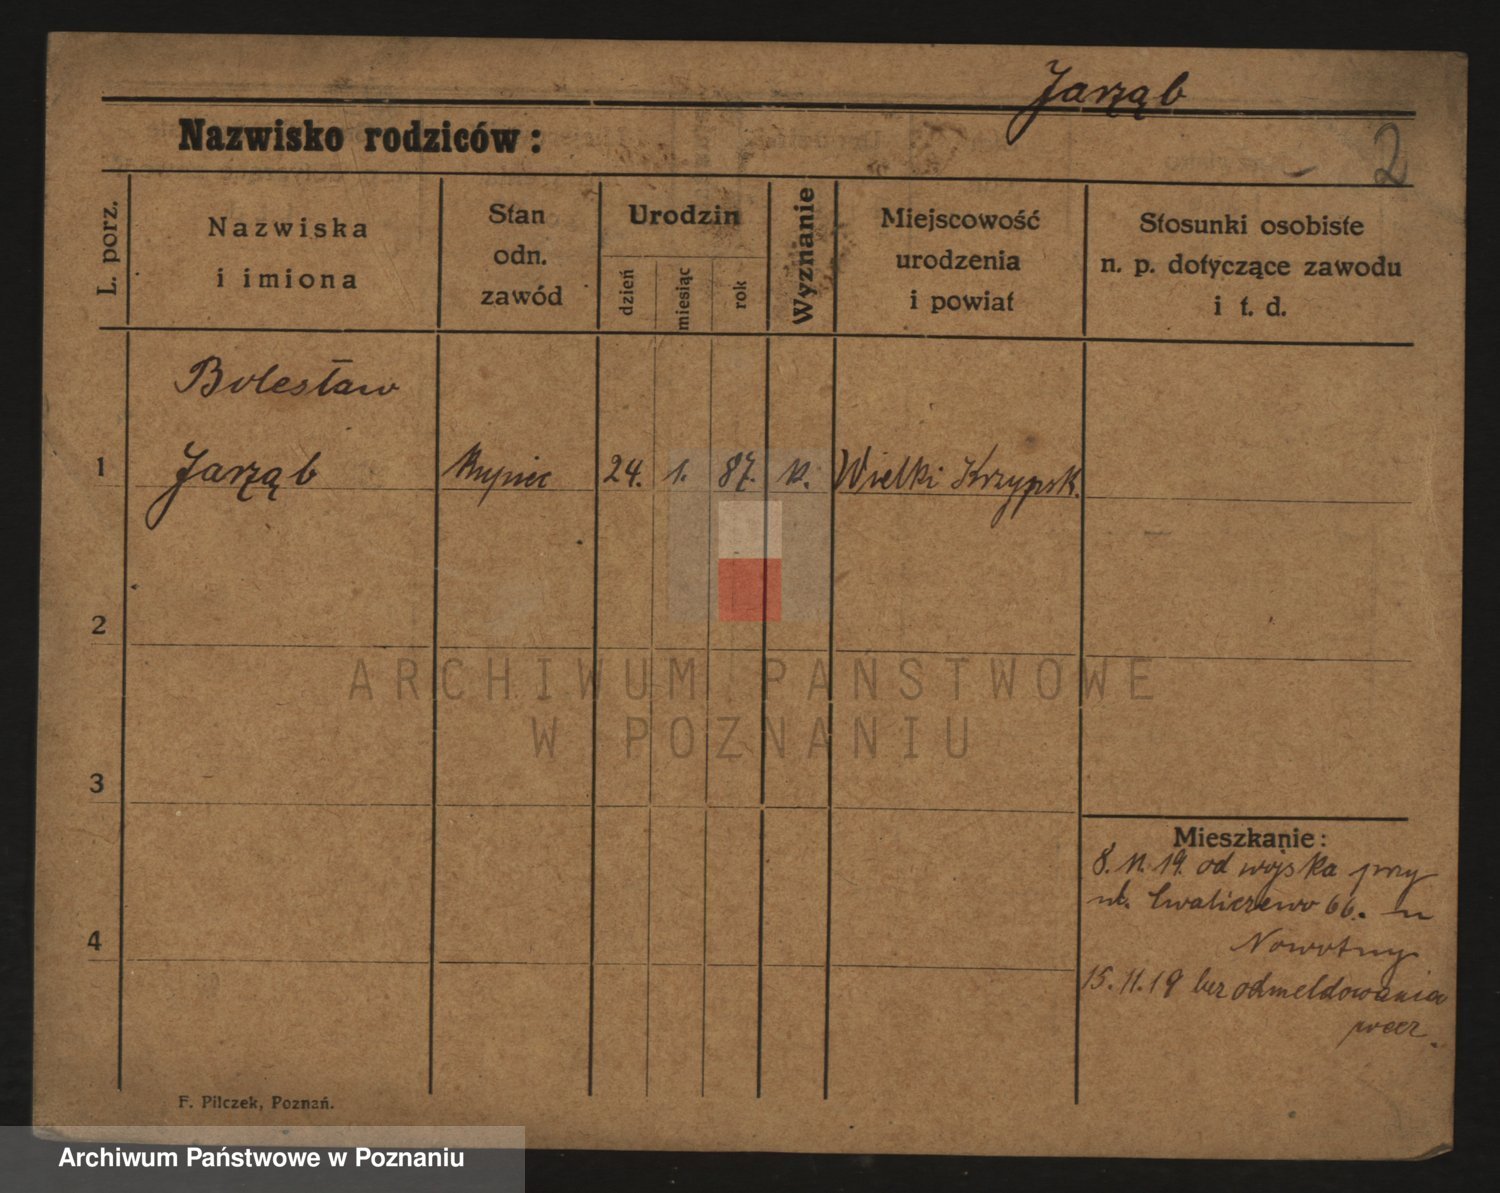 Jarząb
Nazwisko rodziców:
2
L. porz.
Nazwiska
i imiona
Stan
odn.
zawód
Urodzin
dzień
miesiąc
rok
Wyznanie
Miejscowość
urodzenia
i powiat
Stosunki osobiste
n. p. dotyczące zawodu
i t. d.
Bolesław
1 Jarząb kupiec 24. 1. 87. k. Wielki Krzypsk.
2
3
4
Mieszkanie:
8. 11. 19. od wojska przy
ul. Chwaliszewo 66. u
Nowotny
15.11.19 bez odmeldowania
precz.
F. Pilczek, Poznań.
ARCHIWUM PAŃSTWOWE
W POZNANIU
Archiwum Państwowe w Poznaniu